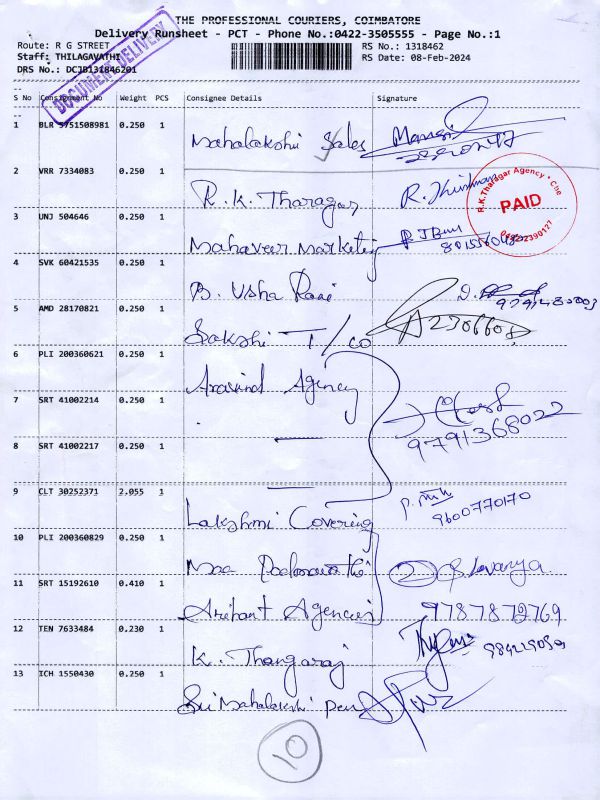 THE PROFESSIONAL COURIERS, COIMBATORE
Delivery Runsheet - PCT - Phone No.:0422-3505555 - Page No.:1
Route: R G STREET
RS No.: 1318462
Staff: THILAGAVATHI
RS Date: 08-Feb-2024
DRS No.: DCJB131846201
DOCUMENT DELIVERY
S No Consignment No Weight PCS Consignee Details Signature
1 BLR 5751508981 0.250 1 Mahalakshi Sales
2 VRR 7334083 0.250 1 R.K. Tharagar
R.K.Tharagar Agency • Cbe
PAID
3 UNJ 504646 0.250 1 Mahaveer Marketing
4 SVK 60421535 0.250 1 B. Usha Rani
5 AMD 28170821 0.250 1 Sakshi T/co
6 PLI 200360621 0.250 1 Aravind Agency
7 SRT 41002214 0.250 1
9791368022
8 SRT 41002217 0.250 1
9 CLT 30252371 2.055 1 Lakshmi Covering
9600770170
10 PLI 200360829 0.250 1 Maa Padmavathi
2 S. Lavanya
11 SRT 15192610 0.410 1 Arihant Agencies 9787872769
12 TEN 7633484 0.230 1 K. Thangaraj
13 ICH 1550430 0.250 1 Sri Mahalakshi Pen
10